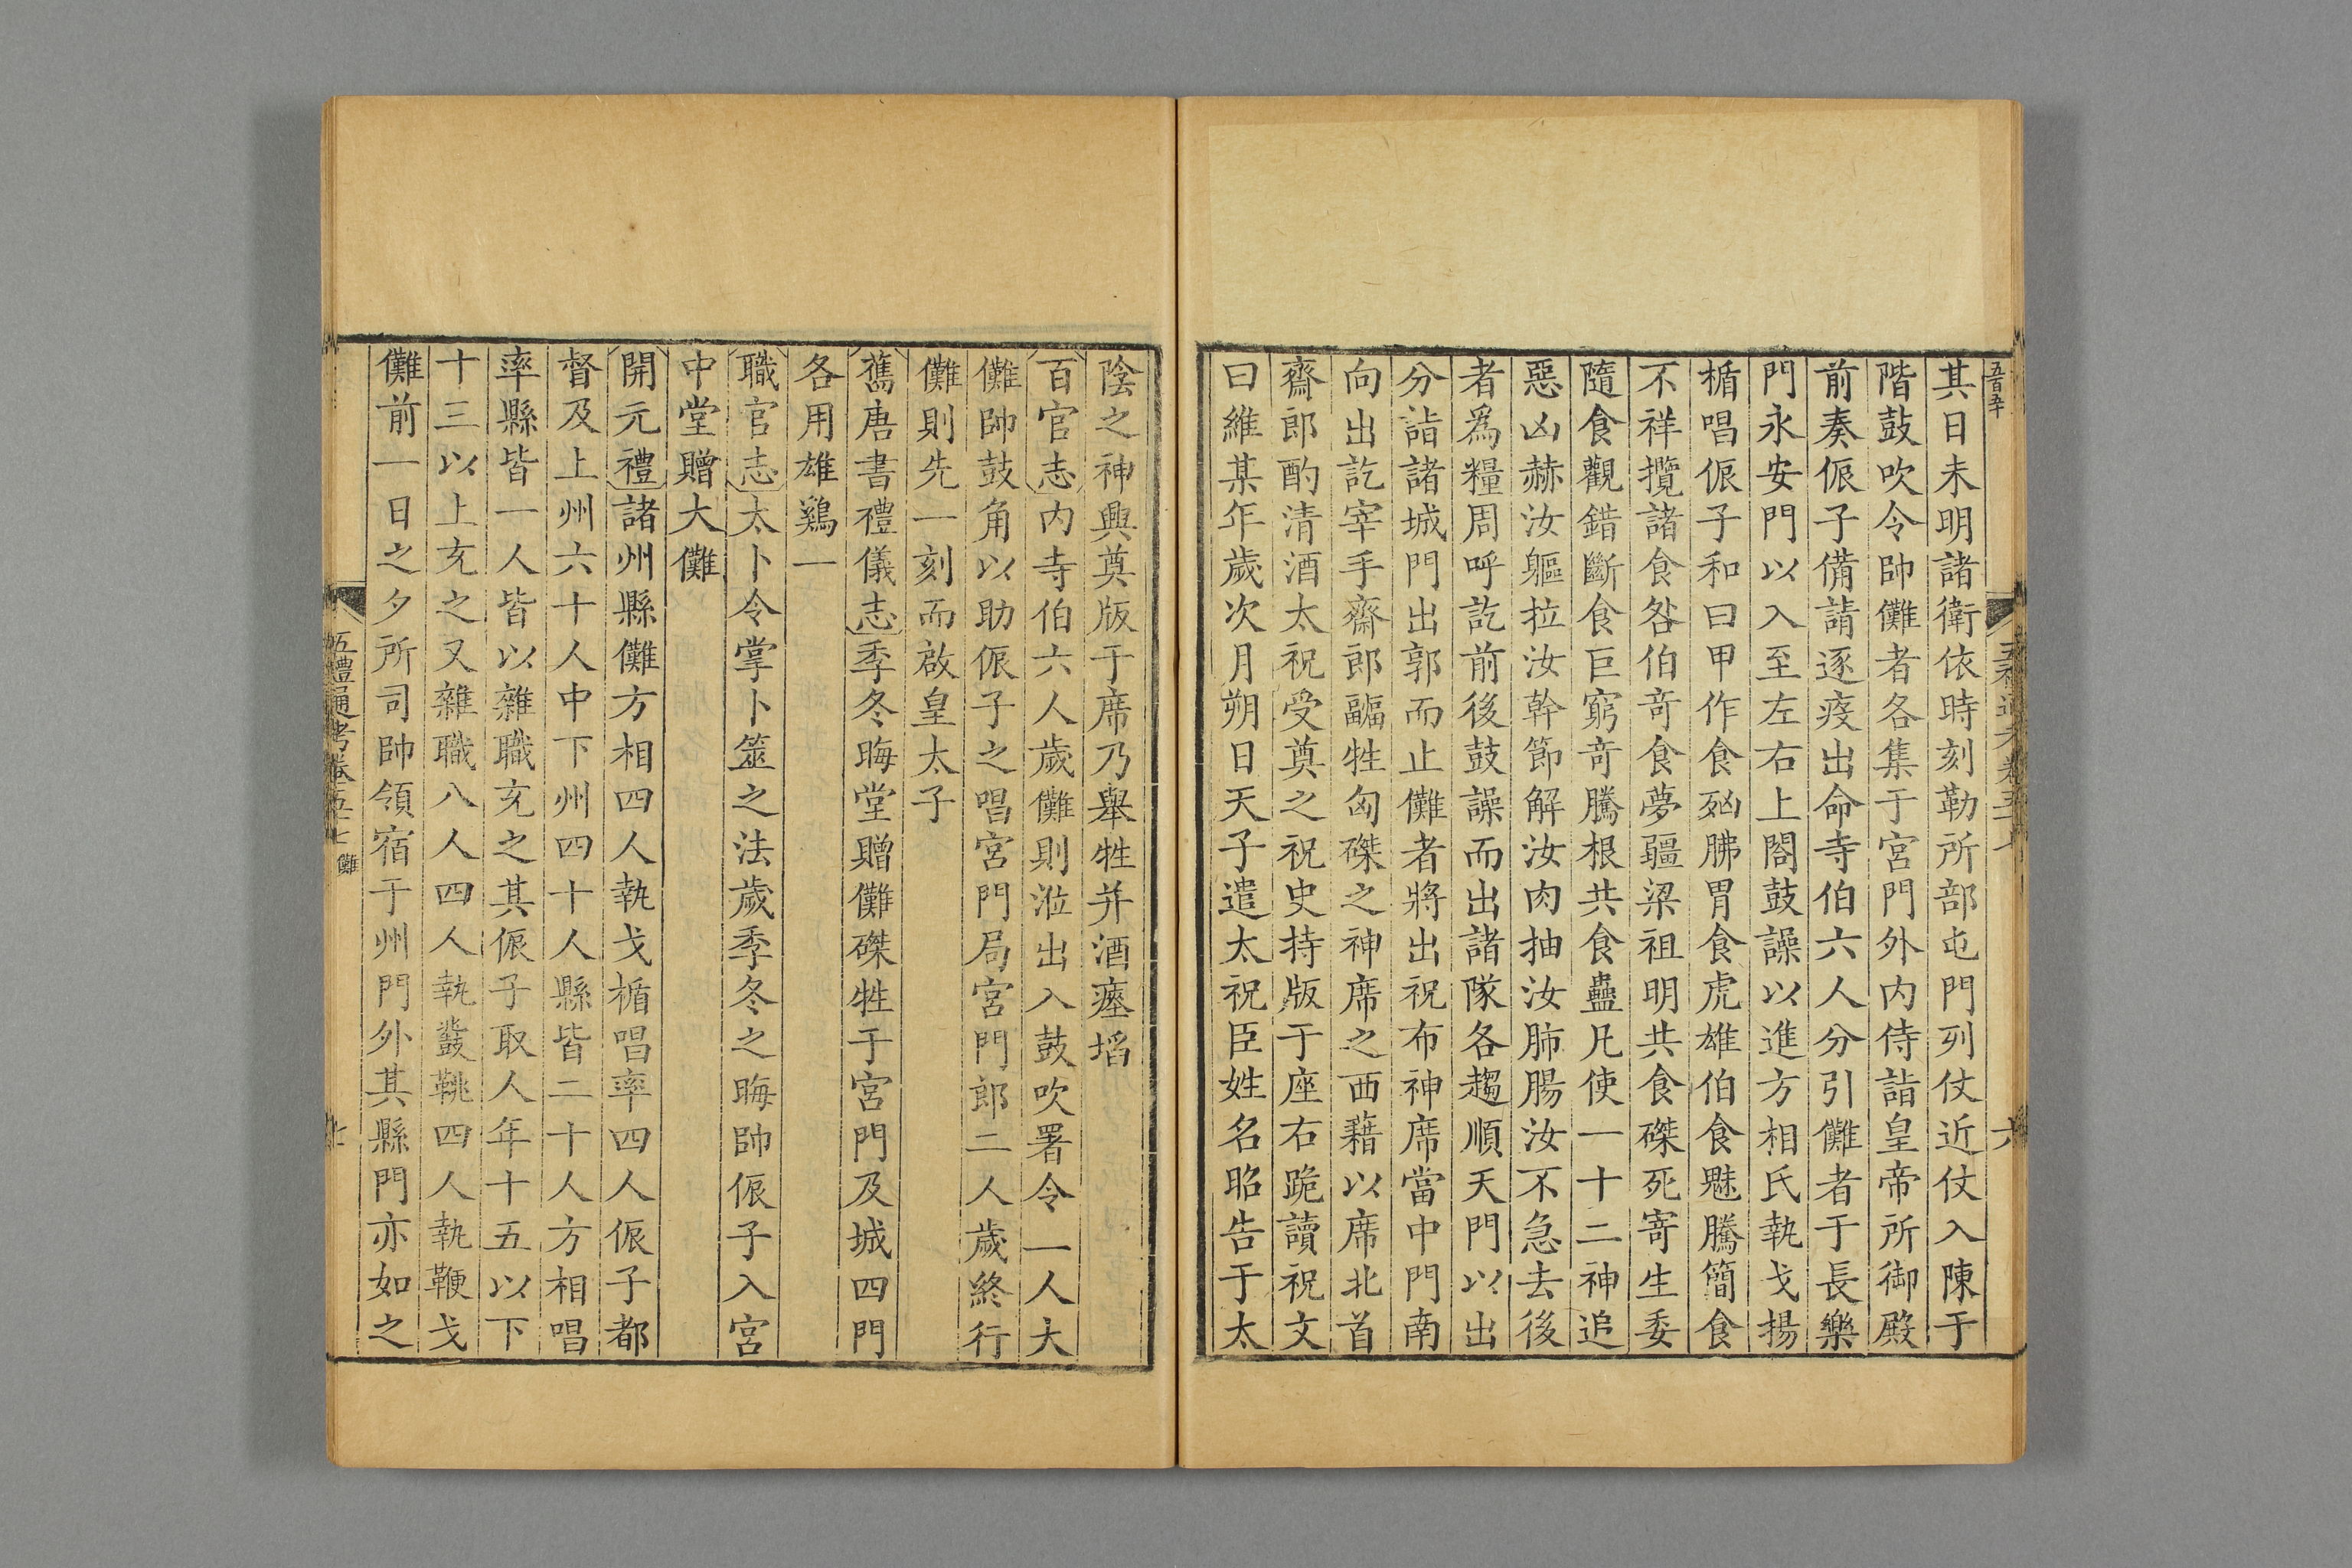 其日未明諸衛依時刻勒所部屯門列仗近仗入陳于
階鼓吹令帥儺者各集于宮門外内侍詣皇帝所御殿
前奏侲子備請逐疫出命寺伯六人分引儺者于長樂
門永安門以入至左右上閤鼓譟以進方相氏執戈揚
楯唱侲子和曰甲作食㓙胇胃食虎雄伯食魅騰簡食
不祥攬諸食咎伯竒食夢疆梁祖明共食磔死寄生委
隨食觀錯斷食巨窮竒騰根共食蠱凡使一十二神追
惡凶赫汝軀拉汝幹節解汝肉抽汝肺腸汝不急去後
者爲糧周呼訖前後鼓譟而出諸隊各趨順天門以出
分詣諸城門出郭而止儺者將出祝布神席當中門南
向出訖宰手齋郎疈牲匈磔之神席之西藉以席北首
齋郎酌清酒太祝受奠之祝史持版于座右跪讀祝文
曰維某年歲次月朔日天子遣太祝臣姓名昭告于太
陰之神興奠版于席乃舉牲并酒瘞埳
百官志内寺伯六人歲儺則涖出入鼓吹署令一人大
儺帥鼓角以助侲子之唱宮門局宮門郎二人歲終行
儺則先一刻而啟皇太子
舊唐書禮儀志季冬晦堂贈儺磔牲于宮門及城四門
各用雄鷄一
職官志太卜令掌卜筮之法歲季冬之晦帥侲子入宮
中堂贈大儺
開元禮諸州縣儺方相四人執戈楯唱率四人侲子都
督及上州六十人中下州四十人縣皆二十人方相唱
率縣皆一人皆以雜職充之其侲子取人年十五以下
十三以上充之又雜職八人四人執鼗鞉四人執鞭戈
儺前一日之夕所司帥領宿于州門外其縣門亦如之
五禮通考卷五十七 儺